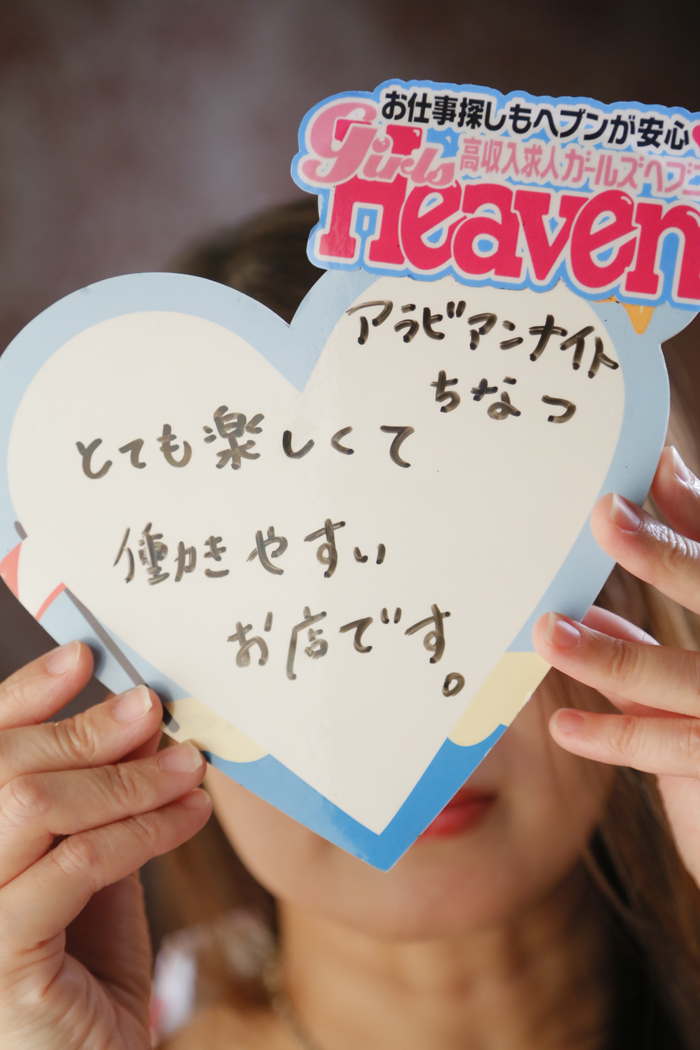 お仕事探しもヘブンが安心
Girls
高収入求人ガールズヘブン
Heaven
アラビアンナイト
ちなつ
とても楽しくて
働きやすい
お店です。